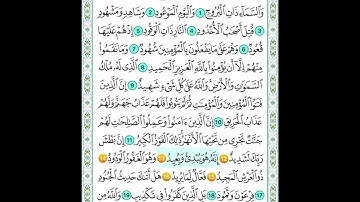 وَٱلسَّمَآءِ ذَاتِ ٱلْبُرُوجِ 1 وَٱلْيَوْمِ ٱلْمَوْعُودِ 2 وَشَاهِدٍ وَمَشْهُودٍ
3 قُتِلَ أَصْحَٰبُ ٱلْأُخْدُودِ 4 ٱلنَّارِ ذَاتِ ٱلْوَقُودِ 5 إِذْ هُمْ عَلَيْهَا
قُعُودٌ 6 وَهُمْ عَلَىٰ مَا يَفْعَلُونَ بِٱلْمُؤْمِنِينَ شُهُودٌ 7 وَمَا نَقَمُوا۟
مِنْهُمْ إِلَّآ أَن يُؤْمِنُوا۟ بِٱللَّهِ ٱلْعَزِيزِ ٱلْحَمِيدِ 8 ٱلَّذِى لَهُۥ مُلْكُ
ٱلسَّمَٰوَٰتِ وَٱلْأَرْضِ وَٱللَّهُ عَلَىٰ كُلِّ شَىْءٍ شَهِيدٌ 9 إِنَّ ٱلَّذِينَ
فَتَنُوا۟ ٱلْمُؤْمِنِينَ وَٱلْمُؤْمِنَٰتِ ثُمَّ لَمْ يَتُوبُوا۟ فَلَهُمْ عَذَابُ جَهَنَّمَ وَلَهُمْ
عَذَابُ ٱلْحَرِيقِ 10 إِنَّ ٱلَّذِينَ ءَامَنُوا۟ وَعَمِلُوا۟ ٱلصَّٰلِحَٰتِ لَهُمْ
جَنَّٰتٌ تَجْرِى مِن تَحْتِهَا ٱلْأَنْهَٰرُ ذَٰلِكَ ٱلْفَوْزُ ٱلْكَبِيرُ 11 إِنَّ بَطْشَ
رَبِّكَ لَشَدِيدٌ 12 إِنَّهُۥ هُوَ يُبْدِئُ وَيُعِيدُ 13 وَهُوَ ٱلْغَفُورُ ٱلْوَدُودُ 14
ذُو ٱلْعَرْشِ ٱلْمَجِيدُ 15 فَعَّالٌ لِّمَا يُرِيدُ 16 هَلْ أَتَىٰكَ حَدِيثُ ٱلْجُنُودِ
17 فِرْعَوْنَ وَثَمُودَ 18 بَلِ ٱلَّذِينَ كَفَرُوا۟ فِى تَكْذِيبٍ 19 وَٱللَّهُ مِن